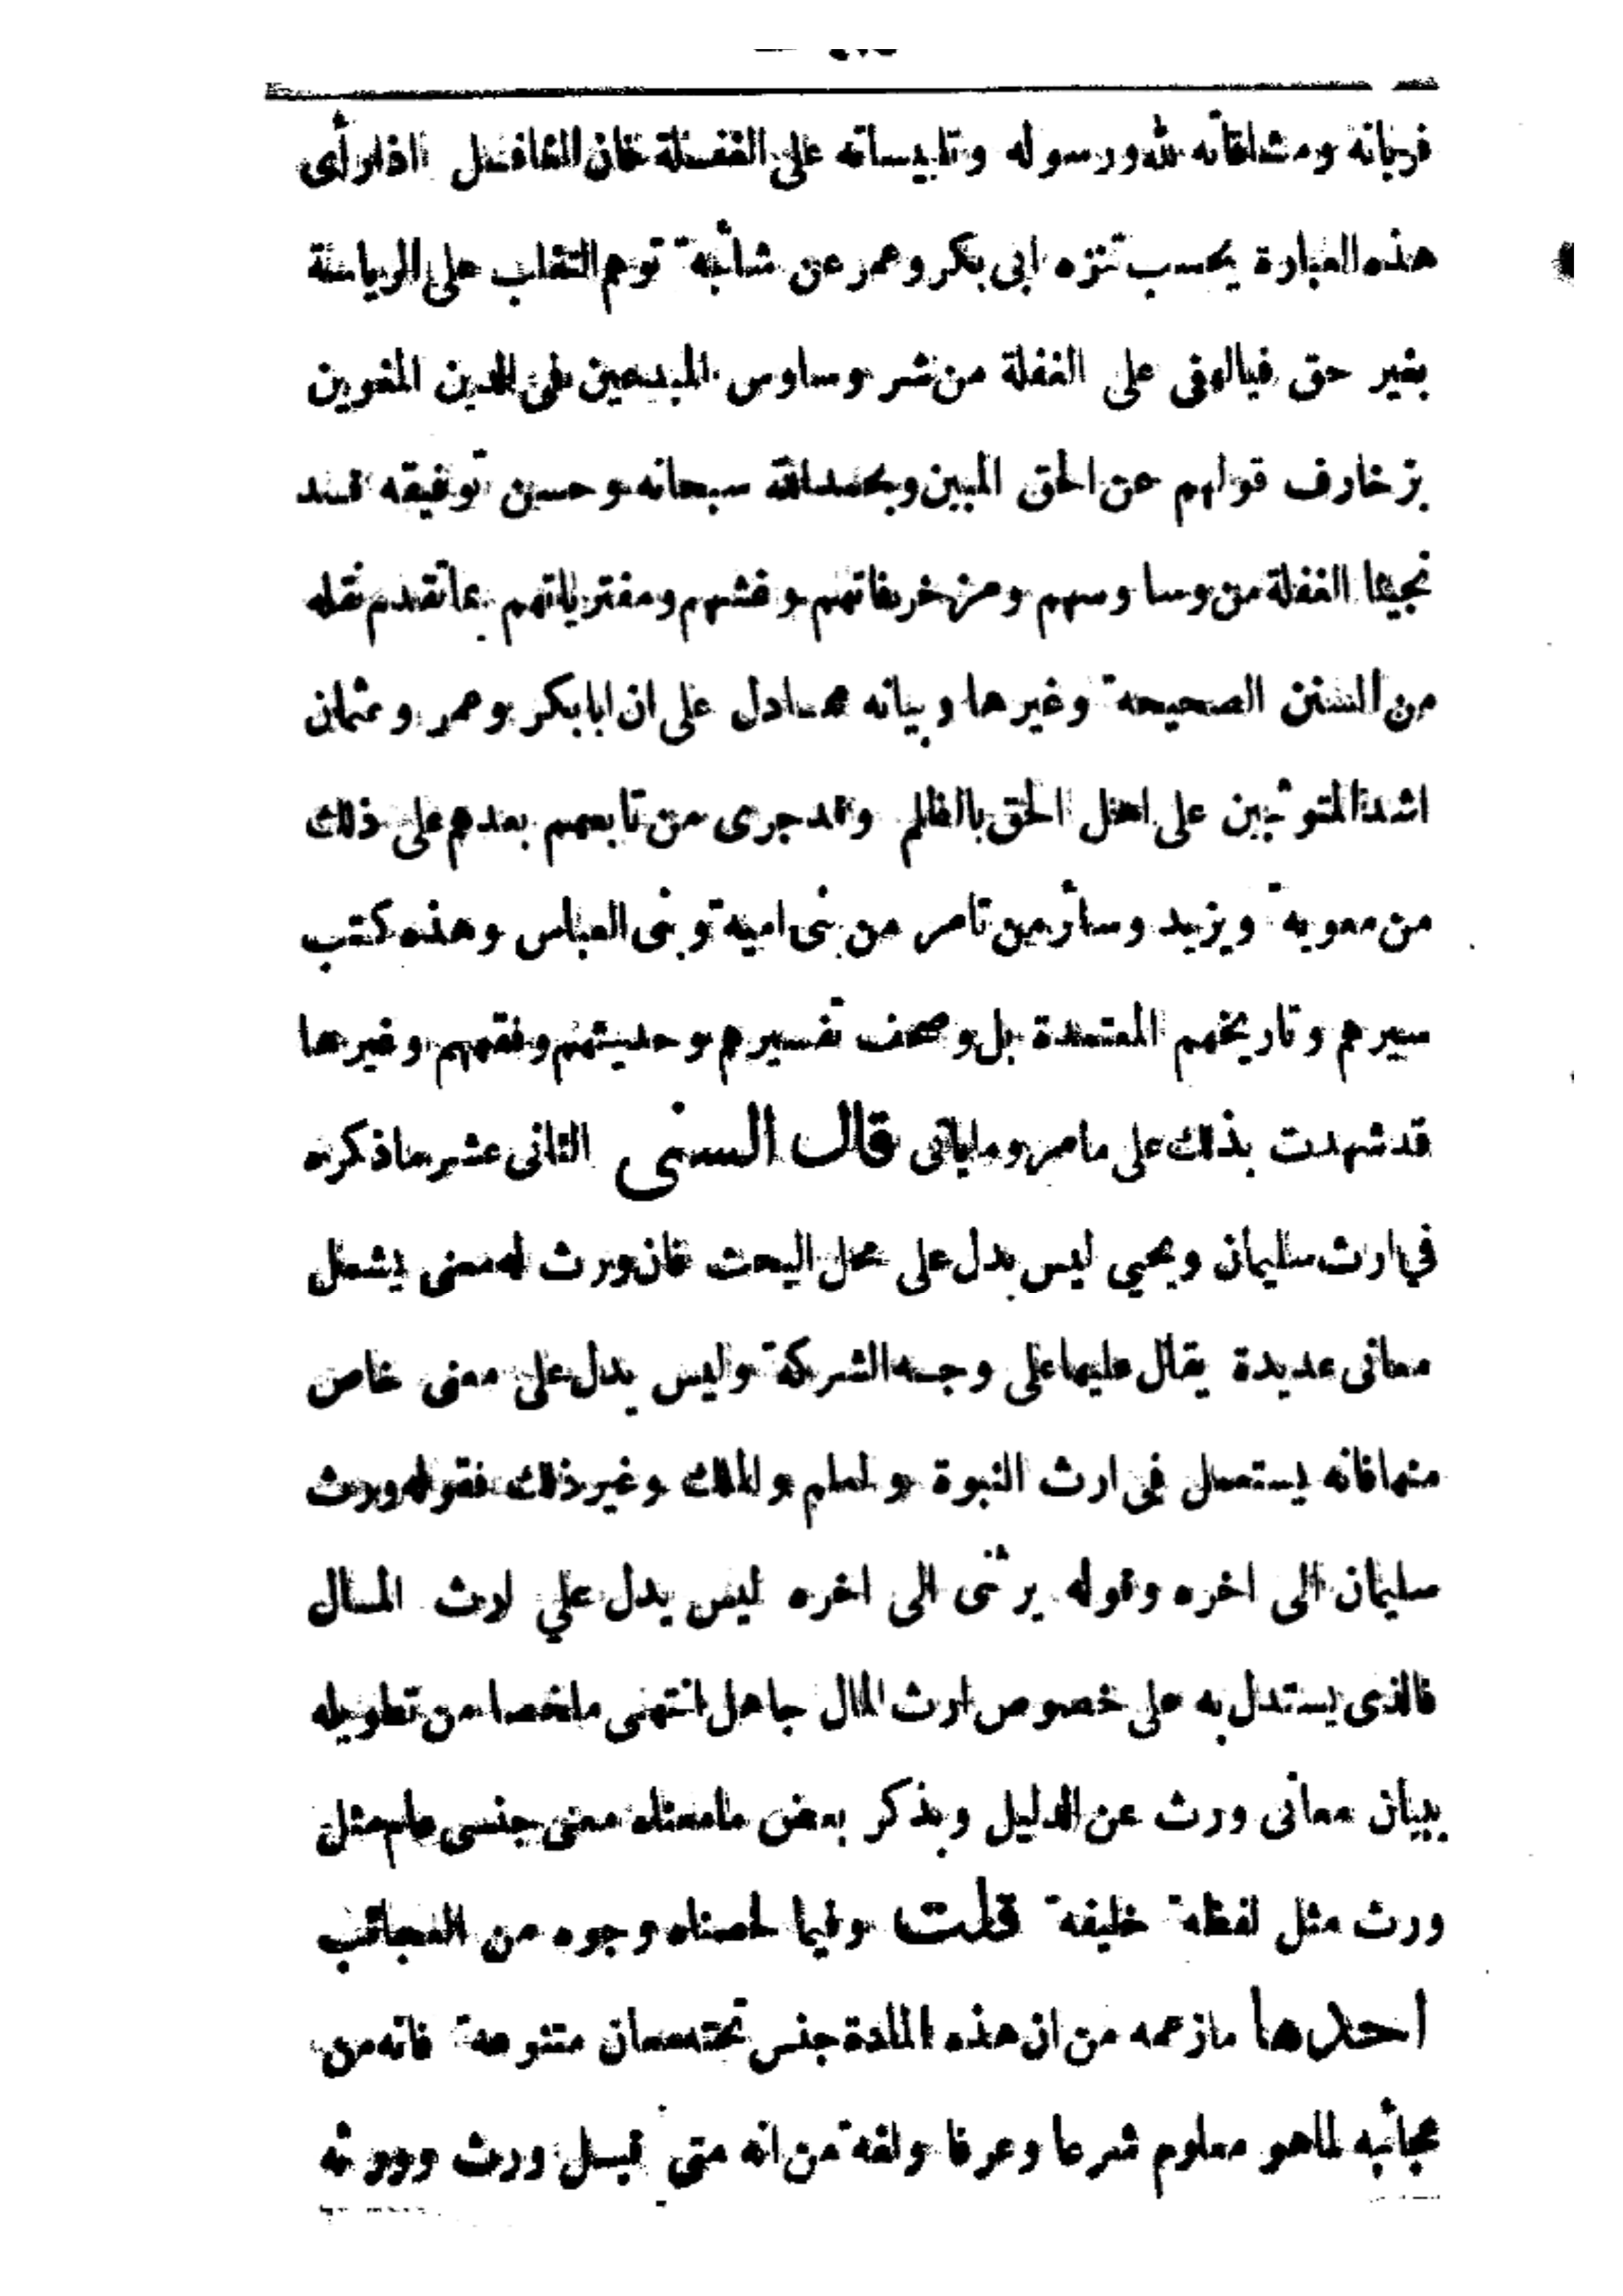 فرياته ومشاقاته لله ورسوله وتلبيساته على الغفلة فان الغافل اذا رأى
هذه العبارة يحسب تنزه ابى بكر وعمر عن شائبة توهم التقلب على الرياسة
بغير حق فيالهفى على الغفلة من شر وساوس المبدعين فى الدين المغوين
بزخارف قولهم عن الحق المبين وبحمد الله سبحانه وحسن توفيقه قد
نجينا الغفلة من وساوسهم ومزخرفاتهم وغشهم ومفترياتهم بما تقدم نقله
من السنن الصحيحة وغيرها وبيانه مما دل على ان ابابكر وعمر وعثمان
اشد المتوثبين على اهل الحق بالظلم وقد جرى من تابعهم بعدهم على ذلك
من معوية ويزيد وسائر من تامر من بنى امية وبنى العباس وهذه كتب
سيرهم وتاريخهم المعتمدة بل وصحف تفسيرهم وحديثهم وفقههم وغيرها
قد شهدت بذلك على ما مر وماياتى قال السنى الثانى عشر ماذكره
في ارث سليمان ويحيى ليس يدل على محل البحث فان ورث له معنى يشمل
معانى عديدة يقال عليها على وجه الشركة وليس يدل على معنى خاص
منها فانه يستعمل فى ارث النبوة والعلم والملك وغير ذلك فقوله وورث
سليمان الى اخره وقوله يرثنى الى اخره ليس يدل علي ارث المال
فالذى يستدل به على خصوص ارث المال جاهل انتهى ملخصا من تطويله
ببيان معانى ورث عن الدليل وبذكر بعض مامعناه معنى جنسى عام مثل
ورث مثل لفظة خليفة قلت وفيما لخصناه وجوه من العجائب
احدها مازعمه من ان هذه المادة جنس تحته معان متنوعة فانه من
عجائبه لماهو معلوم شرعا وعرفا ولغة من انه متى قيل ورث وورثه